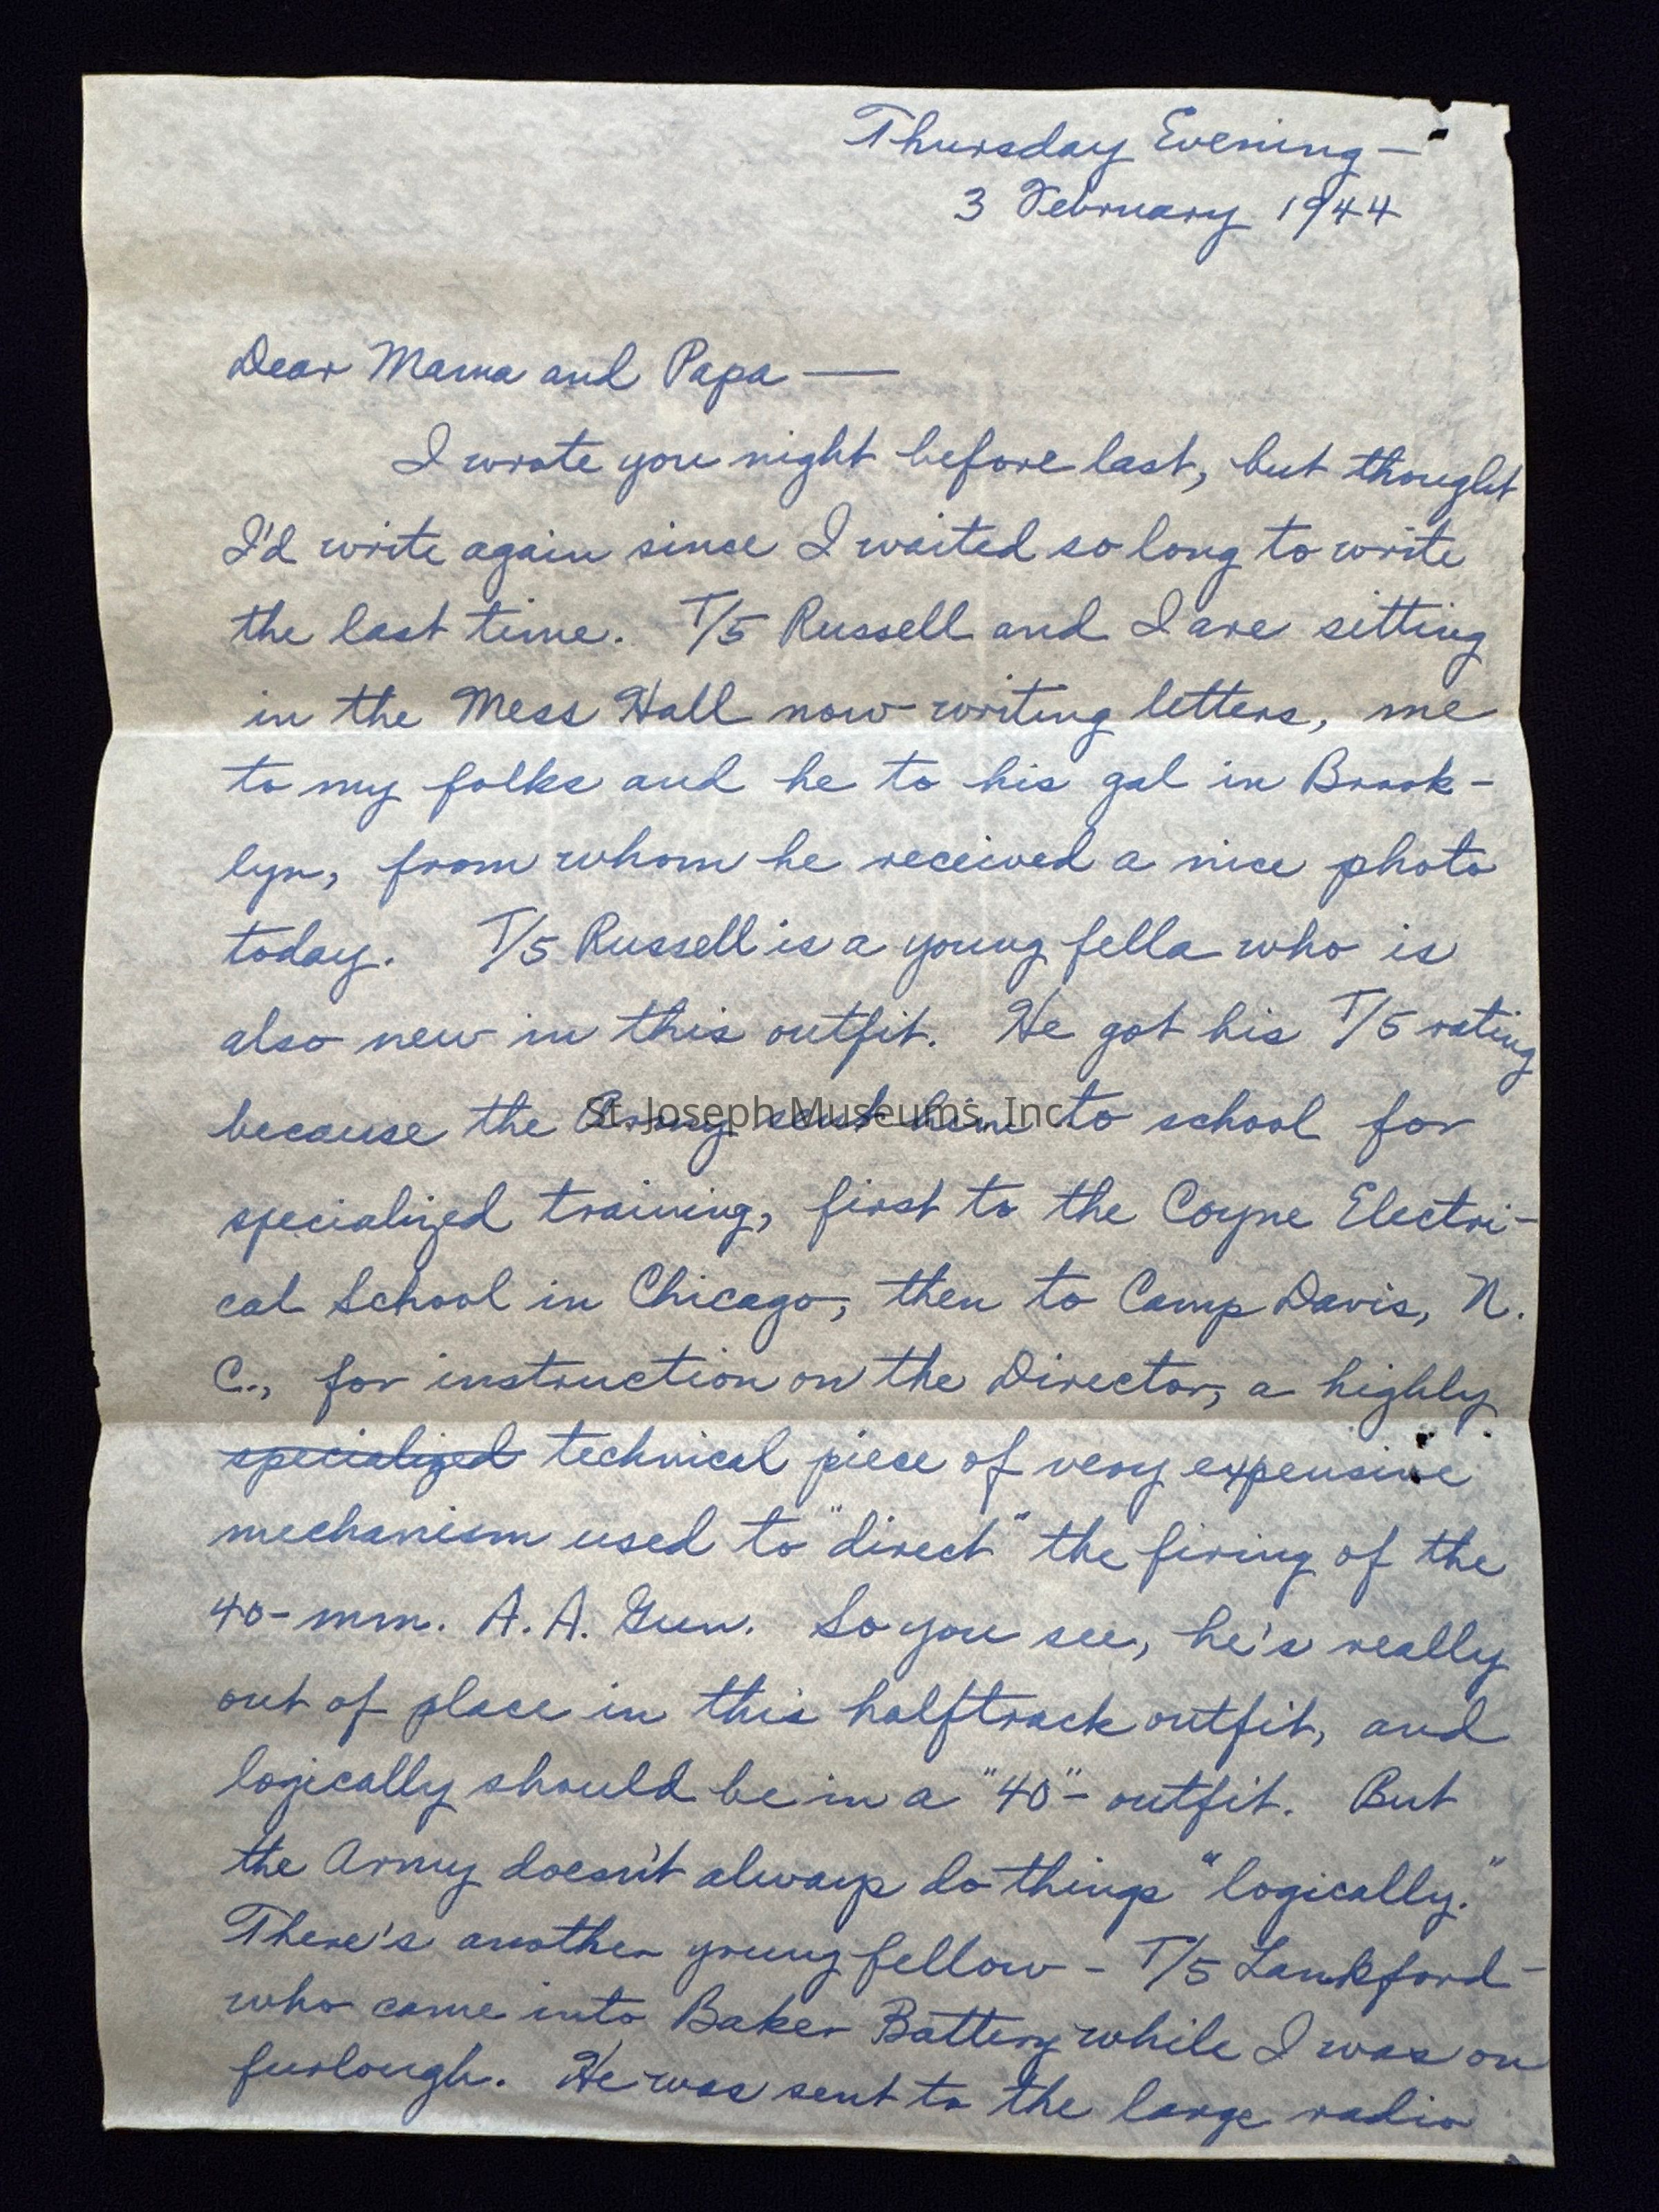 Thursday Evening—
3 February 1944
Dear Mama and Papa —
I wrote you night before last, but thought
I'd write again since I waited so long to write
the last time. T/5 Russell and I are sitting
in the Mess Hall now writing letters, me
to my folks and he to his gal in Brook-
lyn, from whom he received a nice photo
today. T/5 Russell is a young fella who is
also new in this outfit. He got his T/5 rating
because the Army sent him to school for
St. Joseph Museums, Inc.
specialized training, first to the Coyne Electri-
cal School in Chicago, then to Camp Davis, N.
C., for instruction on the Director, a highly
specialized technical piece of very expensive
mechanism used to "direct" the firing of the
40-mm. A.A. Gun. So you see, he's really
out of place in this halftrack outfit, and
logically should be in a "40"- outfit. But
the Army doesn't always do things "logically."
There's another young fellow - T/5 Lankford -
who came into Baker Battery while I was on
furlough. He was sent to the large radio